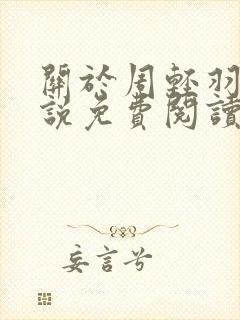 關於周輕羽
說免費閱讀
妄言兮